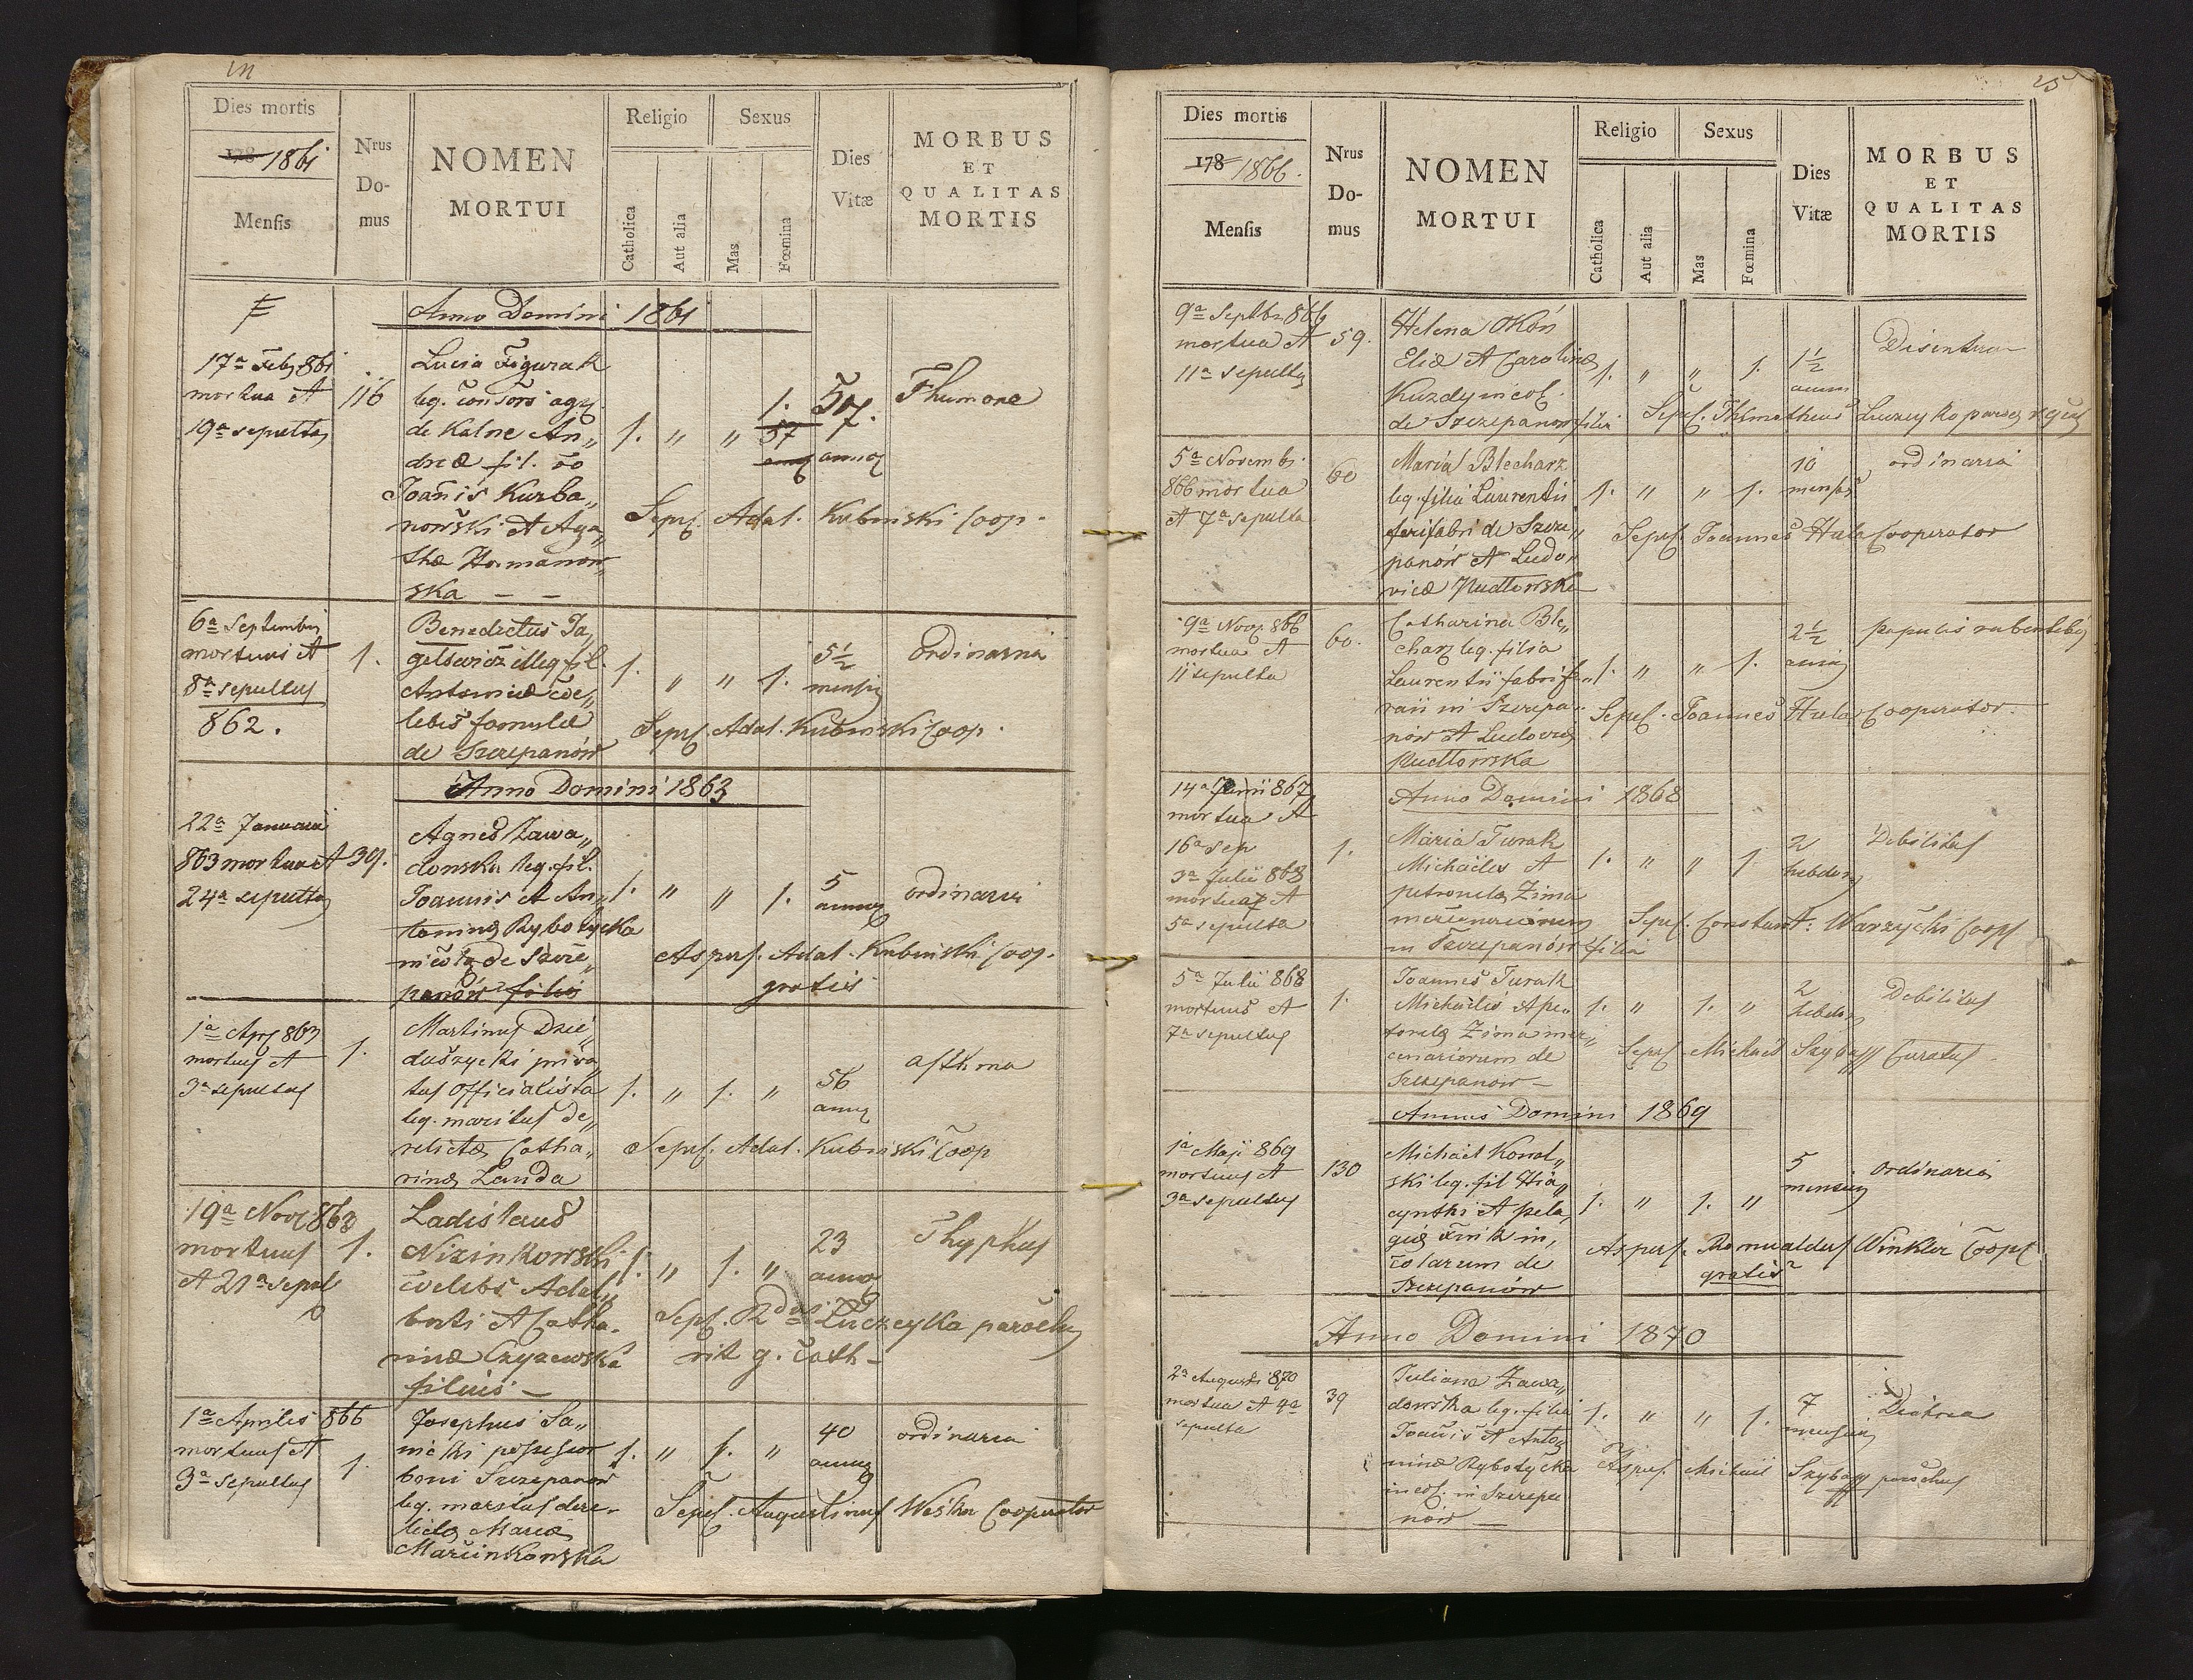 Dies mortis
178 1861
Mensis
Nrus
Do-
mus
NOMEN
MORTUI
Religio
Catholica
Aut alia
Sexus
Mas
Fœmina
Dies
Vitæ
MORBUS
ET
QUALITAS
MORTIS
Anno Domini 1861
17a Feb 861
mortua et
19a sepulta
116
Lucia Figurak
leg. consors agr.
de Kalne An„
dreæ fil.
Joannis Kurba„
nowski et Aga„
thæ Homanow„
ska — —
1. „ „ 1.
57
57.
annor
Thumore
Sepel. Adal. Kubinski Coop.
6a Septembris
mortuus et
8a sepultus
862.
1.
Benedictus Ja„
gelsewicz illeg. fil.
Antoniæ cœ„
lebis famulæ
de Szczepanów
1. „ „ 1.
5½
mensis
ordinaria
Sepel. Adal. Kubinski Coop.
Anno Domini 1863
22a Januarii
863 mortua et
24a sepulta
39.
Agnes Zawa„
donska leg. fil.
Joannis et An„
toninæ Rybotycka
incola de Szcze„
panów filia
1. „ „ 1.
5
annor
ordinaria
Aspers. Adal. Kubinski Coop.
gratis
1a Apr 863
mortuus et
3a sepultus
1.
Martinus Dzie„
duszycki priva„
tus Officialista
leg. maritus de„
relictæ Catha„
rinæ Landa
1. „ 1. „
56
annor
asthma
Sepel. Adal. Kubinski Coop
19a Nov 863
mortuus
et 21a sepul
1.
Ladislaus
Nizinkowski
cœlebs Adal„
berti et Catha-
rinæ Czyzewska
filius —
1. „ 1. „
23
annor
Thyphus
Sepel. Rdus Łuczeyka parochus
rit. g. Cath-
1a Aprilis 866
mortuus et
3a sepultus
1.
Josephus Sa„
nicki possessor
boni Szczepanów
leg. maritus dere-
lictæ Mariæ
Marcinkowska
1. „ 1. „
40
annor
ordinaria
Sepel. Augustinus Cooperator
25
Dies mortis
178 1866.
Mensis
Nrus
Do-
mus
NOMEN
MORTUI
Religio
Catholica
Aut alia
Sexus
Mas
Fœmina
Dies
Vitæ
MORBUS
ET
QUALITAS
MORTIS
9a Septbr 866
mortua et
11a sepulta
59.
Helena Okoń
Eliæ et Carolinæ
Kuzdy incol.
de Szczepanow filia
1. „ „ 1.
1½
annor
Disinteria
Sepel. Thimotheus Łuczeyko parochus r. g. c.
5a Novemb.
866 mortua
et 7a sepulta
60
Maria Blecharz
leg. filia Laurentii
ferifabri de Szcze„
panów et Ludo„
vicæ Rudtowska
1. „ „ 1.
10
mensis
ordinaria
Sepel. Joannes Hula Cooperator
9a Nov. 866
mortua et
11 sepulta
60.
Catharina Ble„
charz leg. filia
Laurentii fabri fe„
rarii in Szczepa-
nów et Ludovicæ
Rudtowska
1. „ „ 1.
2½
annor
papulis rubentibus
Sepel. Joannes Hula Cooperator.
14a Junii 867
mortua et
16a sep
Anno Domini 1868
3a Julii 868
mortua et
5a sepulta
1.
Maria Turak
Michaelis et
petronela Zima
mercenariorum
in Szczepanów filia
1. „ „ 1
2
hebdom
Debilitas
Sepel. Constant. Warzycki Coop
5a Julii 868
mortuus et
7a sepultus
1.
Joannes Turak
Michaelis et pe„
tronela Zima mer„
cenariorum de
Szczepanow —
1. „ 1. „
2
hebdom
Debilitas
Sepel. Michael Szybajł Curatus
Annus Domini 1869
1a Maji 869
mortuus et
3a sepultus
130
Michael Kowal„
ski leg. fil Hia„
cynthi et pela„
giæ Fink in„
colarum de
Szczepanów
1. „ 1. „
5
mensium
ordinaria
Aspers. Romualdus Winkler Coop
gratis
Anno Domini 1870
2a Augusti 870
mortua et 4a
sepulta
39
Juliana Zawa„
donska leg. filia
Joannis et Anto„
ninæ Rybotycka
incol. in Szczepa
nów —
1. „ „ 1.
7
mensium
Diahrea
Aspers. Michael Szybajł parochus